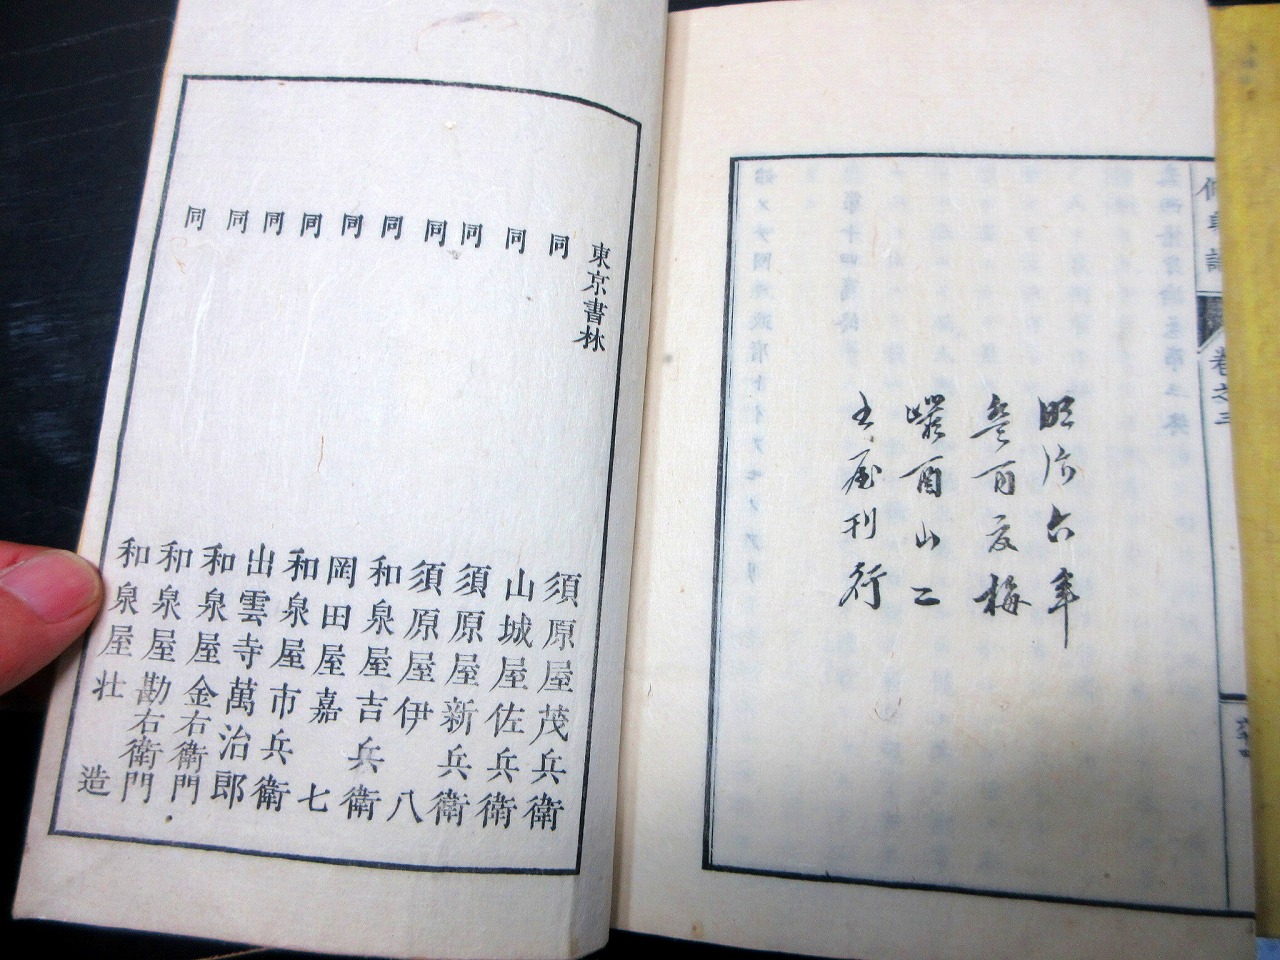 巻之三
明治六年
壹百友梅
巖酉山二
土屋刊行
東京書林
同 須原屋茂兵衛
同 山城屋佐兵衛
同 須原屋新兵衛
同 須原屋伊八
同 和泉屋吉兵衛
同 岡田屋嘉七
同 和泉屋市兵衛
同 出雲寺萬治郎
同 和泉屋金右衛門
同 和泉屋勘右衛門
和泉屋壮造